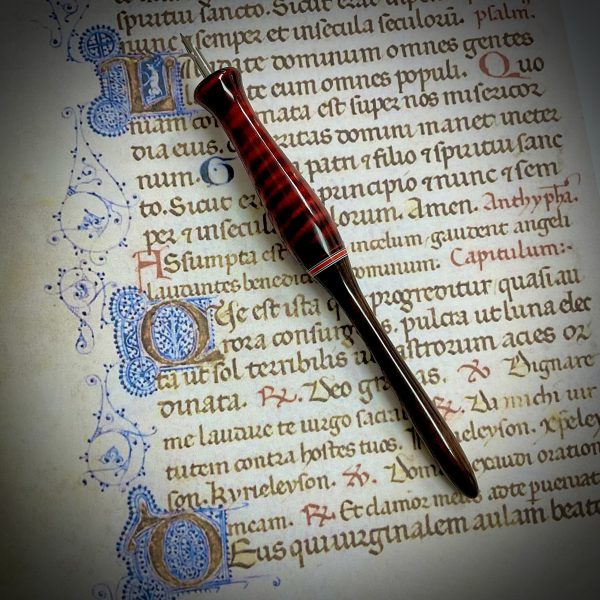 spiritui sancto. Sicut erat
nunc ⁊ semper et in secula seculorū. psalm.
date dominum omnes gentes
te eum omnes populi. Quo
niam con ata est super nos misericor
dia eius. ueritas domini manet in eter
num. G patri ⁊ filio ⁊ spiritui sanc
to. Sicut er principio ⁊ nunc ⁊ sem
per ⁊ in secu lorum. Amen. Antyphā.
Assumpta est in celum gaudent angeli
laudantes benedic ominum. Capitulum:-
Que est ista q progreditur quasi au
rora consurg s. pulcra ut luna elec
ta ut sol terribilis u astrorum acies or
dinata. R. Deo gra as. V. Dignare
me laudare te uirgo sacra R. Da michi uir
tutem contra hostes tuos. rieleyson. xp̄eley
son. Kyrieleyson. V. Domi exaudi oration
meam. R. Et clamor meu ad te perueniat
Deus qui uirginalem aulam beate